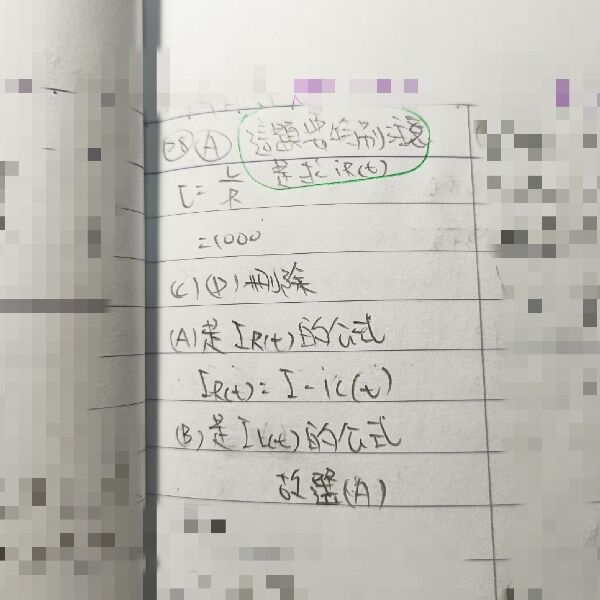 28 A 這題要特別注意
是求 iR(t)
τ = L/R
=1000
(C)(D)刪除
(A)是IR(t)的公式
IR(t)= I - iL(t)
(B)是IL(t)的公式
故選(A)